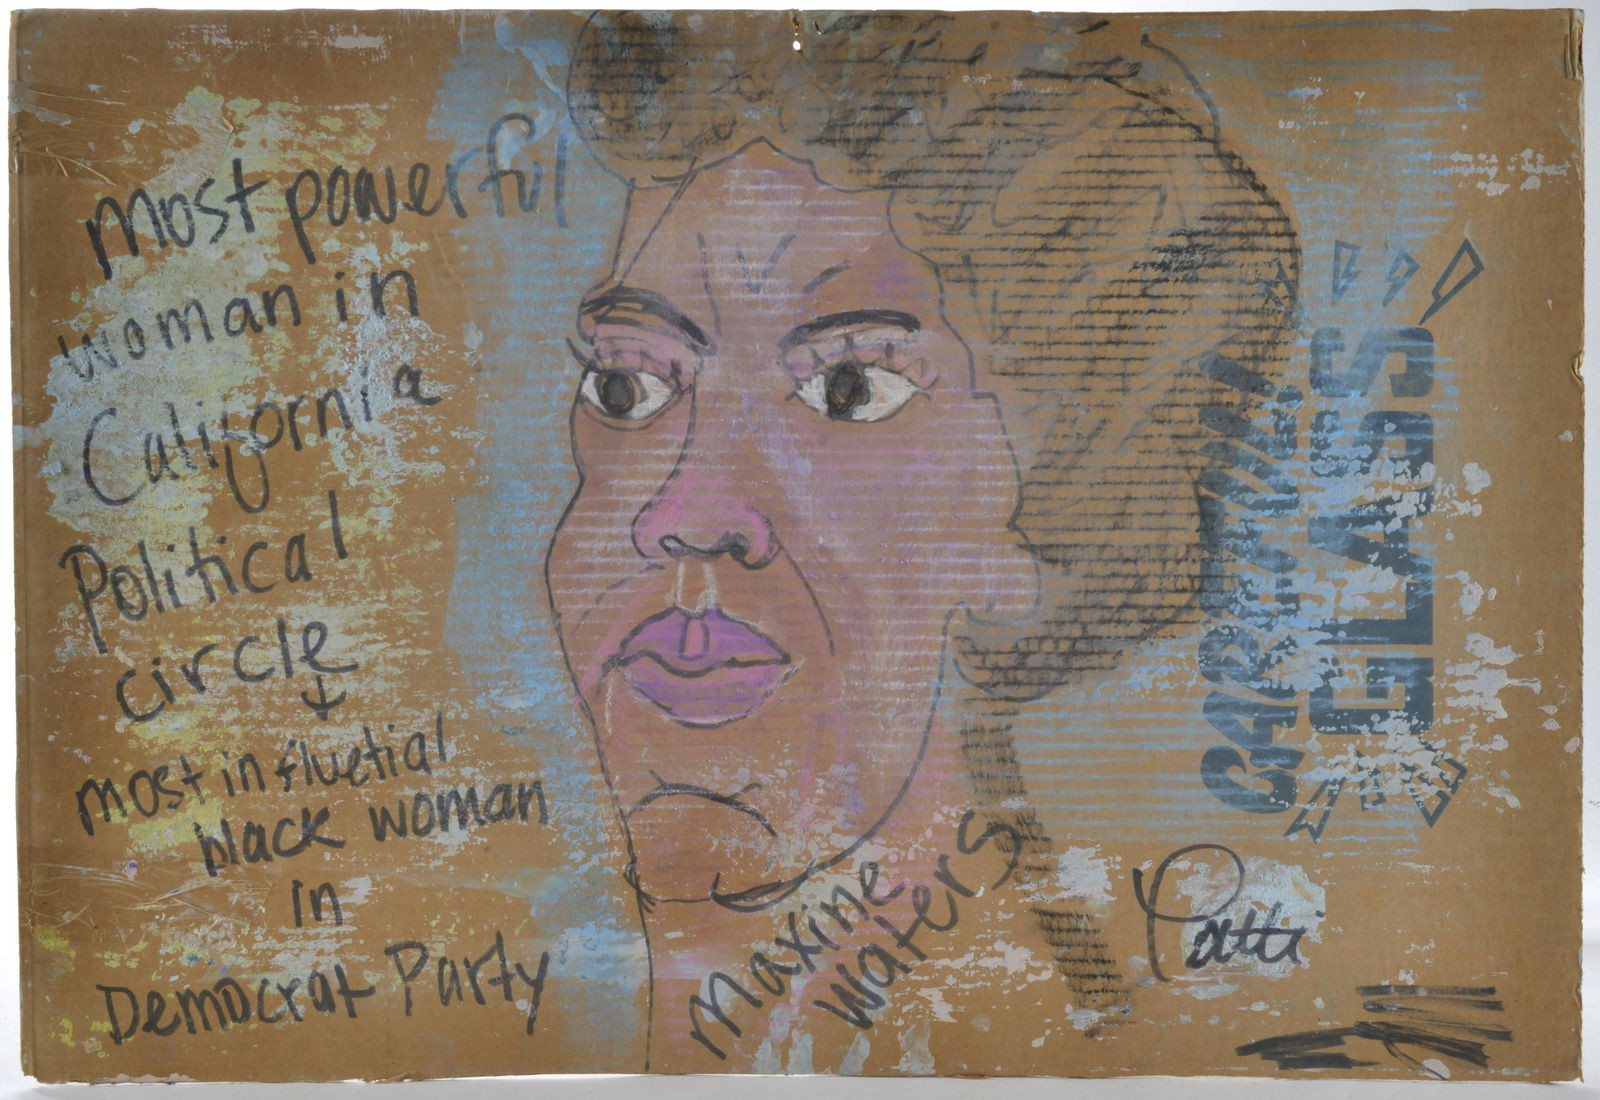 most powerful
woman in
California
Political
circle
+
most influetial
black woman
in
Democrat Party
maxine
waters
CAREFUL!
GLASS
Patti